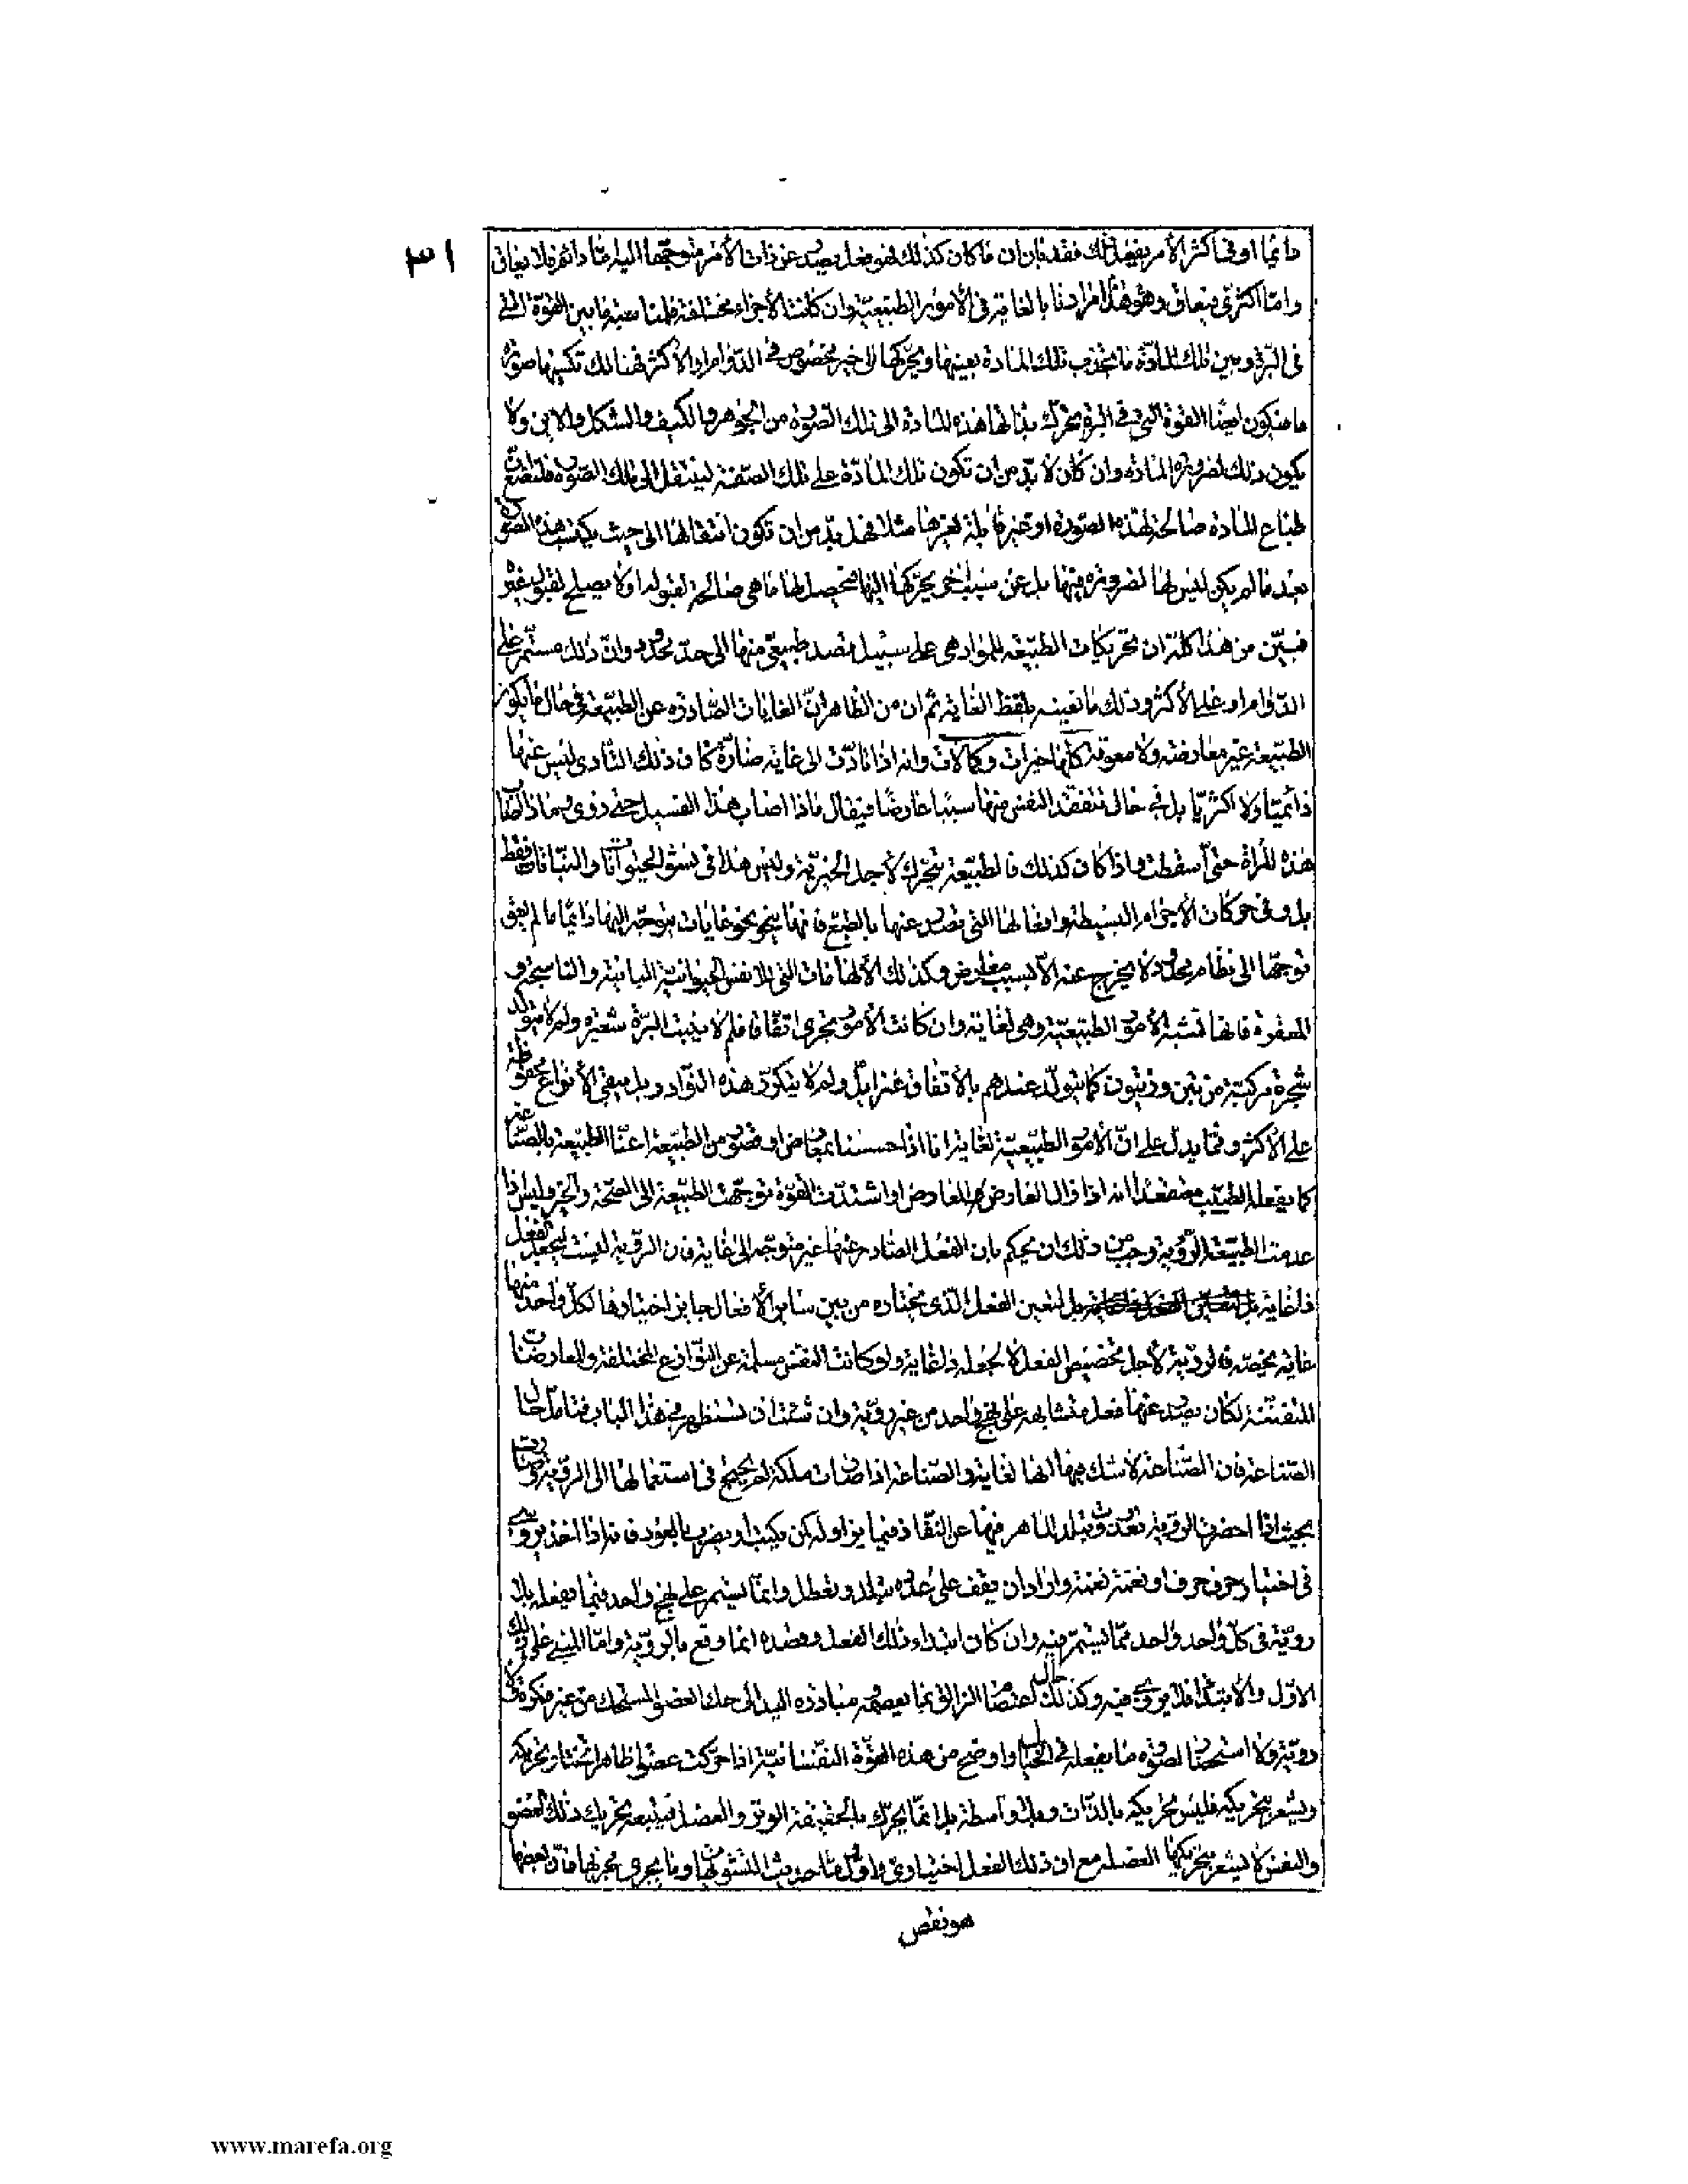 ٣١
دائما او فى اكثر الأمر يفعل ذلك فقد بان ان ما كان كذلك فهو فعل يصدر عن ذات الأمر متوجها اليه فاما دائم فلا يعاق
واما اكثرى فيعاق وهو هذا مرادنا بالغاية فى الأمور الطبيعية وان كانت الأجزاء مختلفة فلمناسبة ما بين القوة التى
فى البرة وبين تلك المادة ما تجذب تلك المادة بعينها وتحركها الى حيز مخصوص فى الدوام او الأكثر فهنالك تكسبها صورة
ما فيكون ايضا القوة التى فى البرة تحرك بذاتها هذه المادة الى تلك الصورة من الجوهر والكيف والشكل والاين ولا
يكون ذلك لضرورة المادة وان كان لا بد من ان تكون تلك المادة على تلك الصفة لينتقل الى تلك الصورة فلنضع ان
طباع المادة صالحة لهذه الصورة او غير قابلة لغيرها مثلا فهل بد من ان تكون انتقالها الى حيث يكتسب هذه الصورة
بعد ما لم يكن ليس لها لضرورة فيها بل عن سبب اخر يحركها اليها فتحصل لها ما هى صالحة لقبوله او لا يصلح لقبول غيره
فبين من هذا كله ان تحريكات الطبيعة للمواد هى على سبيل قصد طبيعى منها الى حد محدود وان ذلك مستمر على
الدوام او على الأكثر وذلك ما نعنيه بلفظ الغاية ثم ان من الظاهر ان الغايات الصادرة عن الطبيعة فى حال ما يكون
الطبيعة غير معارضة ولا معوقة كلها خيرات وكمالات وانه اذا تادت الى غاية ضارة كان ذلك التادى ليس عنها
دائميا ولا اكثريا بل فى حال تتفقد النفس منها سببا عارضا فيقال ماذا اصاب هذا الفسيل حتى ذوى وماذا اصاب
هذه المراة حتى اسقطت واذا كان كذلك فالطبيعة تتحرك لأجل الخيرية وليس هذا فى نشو الحيوانات والنباتات فقط
بل وفى حركات الأجرام البسيطة وافعالها التى تصدر عنها بالطبع فانها تنحو نحو غايات يتوجه اليها دائما ما لم يعق
توجها الى نظام محدود لا يخرج عنه الا لسبب معارض وكذلك الألهامات التى للانفس الحيوانية البانية والناسجة و
المدخرة فانها تشبه الأمور الطبيعية وهى لغاية وان كانت الأمور تجرى اتفاقا فلم لا ينبت البرة شعيرة ولم لا يتولد
شجرة مركبة من تين وزيتون كما يتولد عندهم بالأتفاق عنزايل ولم لا يتكرر هذه النوادر بل يبقى الأنواع محفوظة
على الأكثر ومما يدل على ان الأمور الطبيعية لغاية انا اذا احسسنا بمعارض او قصور من الطبيعة اعنا الطبيعة بالصناعة
كما يفعله الطبيب معتقدا انه اذا زال العارض المعارض او اشتدت القوة توجهت الطبيعة الى الصحة والخير وليس اذا
عدمت الطبيعة الروية وجب من ذلك ان يحكم بان الفعل الصادر عنها غير متوجه الى غاية فان الروية ليست لتجعل الفعل
ذا غاية بل لتعين الفعل الذى يختاره من بين ساير الأفعال جايز اختيارها لكل واحد منها
غاية يخصه فالروية لأجل تخصيص الفعل لا لجعله ذا غاية ولو كانت النفس مسلمة عن النوازع المختلفة والمعارضات
المتفننة لكان يصدر عنها فعل متشابه على نهج واحد من غير روية وان شئت ان تستظهر فى هذا الباب فتامل حال
الصناعة فان الصناعة لا شك فيها انها لغاية والصناعة اذا صارت ملكة لم يحتج فى استعمالها الى الروية وصارت
بحيث اذا احضرت الروية تعذرت وتبلد الماهر فيها عن النفاذ فيما يزاوله كمن يكتب او يضرب بالعود فانه اذا اخذ يروى
فى اختيار حرف حرف او نغمة نغمة واراد ان يقف على عدده تبلد وتعطل وانما يستمر على نهج واحد فيما يفعله بلا
روية فى كل واحد واحد مما يستمر فيه وان كان ابتداء ذلك الفعل وقصده انما وقع بالروية واما المبنى على ذلك
الاول والابتداء فلا يروى فيه وكذلك حال اعتصام الزالق بما يعصمه ومبادرة اليد الى حك العضو المستحك من غير فكرة ولا
روية ولا استحضار لصورة ما يفعله فى الخيال واوضح من هذه القوة النفسانية اذا حركت عضوا ظاهرا تختار تحريكه
ويشعر بتحريكه فليس تحريكه بالذات وبلا واسطة بل انما يحرك بالحقيقة الوتر والعضل فيتبعه تحريك ذلك العضو
والنفس لا يشعر بتحريكها العضلة مع ان ذلك الفعل اختيارى واول واما حديث التشويهات وما يجرى مجريها فان بعضها
هو نقص
www.marefa.org